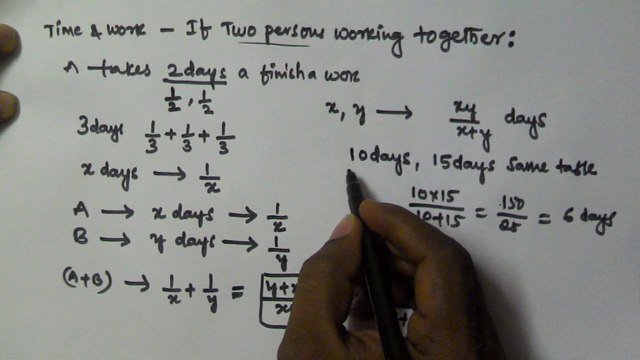 Time & work - If Two persons working together:
A takes 2 days a finish a work
1/2, 1/2
3 days 1/3 + 1/3 + 1/3
x days → 1/x
A → x days → 1/x
B → y days → 1/y
(A+B) → 1/x + 1/y =
x, y → xy/x+y days
10 days, 15 days same task
10×15/10+15 = 150/25 = 6 days